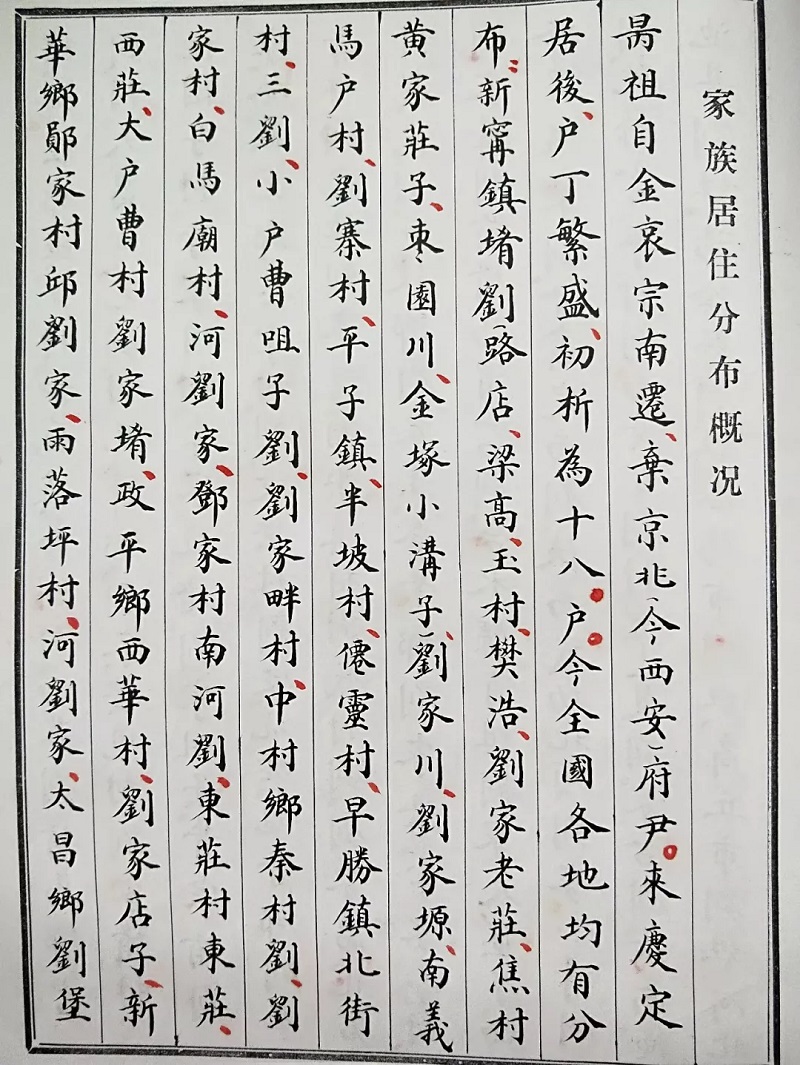 家族居住分布概况
昺祖自金哀宗南遷、棄京兆(今西安)府尹。來慶定
居後、户丁繁盛、初析為十八户。今全國各地均有分
布:新甯鎮堵劉(路店、梁高、玉村、樊浩、劉家老莊、焦村
黄家莊子、枣園川、金塚小溝子)、劉家川、劉家塬、南義
馬户村、劉寨村、平子鎮、半坡村、僊靈村、早勝鎮北街
村、三劉、小户曹咀子劉、劉家畔村、中村鄉秦村劉、劉
家村、白馬廟村、河劉家、鄧家村南河劉、東莊村東莊、
西莊、大户曹村劉家堵、政平鄉西華村、劉家店子、新
華鄉郧家村邱劉家、雨落坪村、河劉家、太昌鄉劉堡